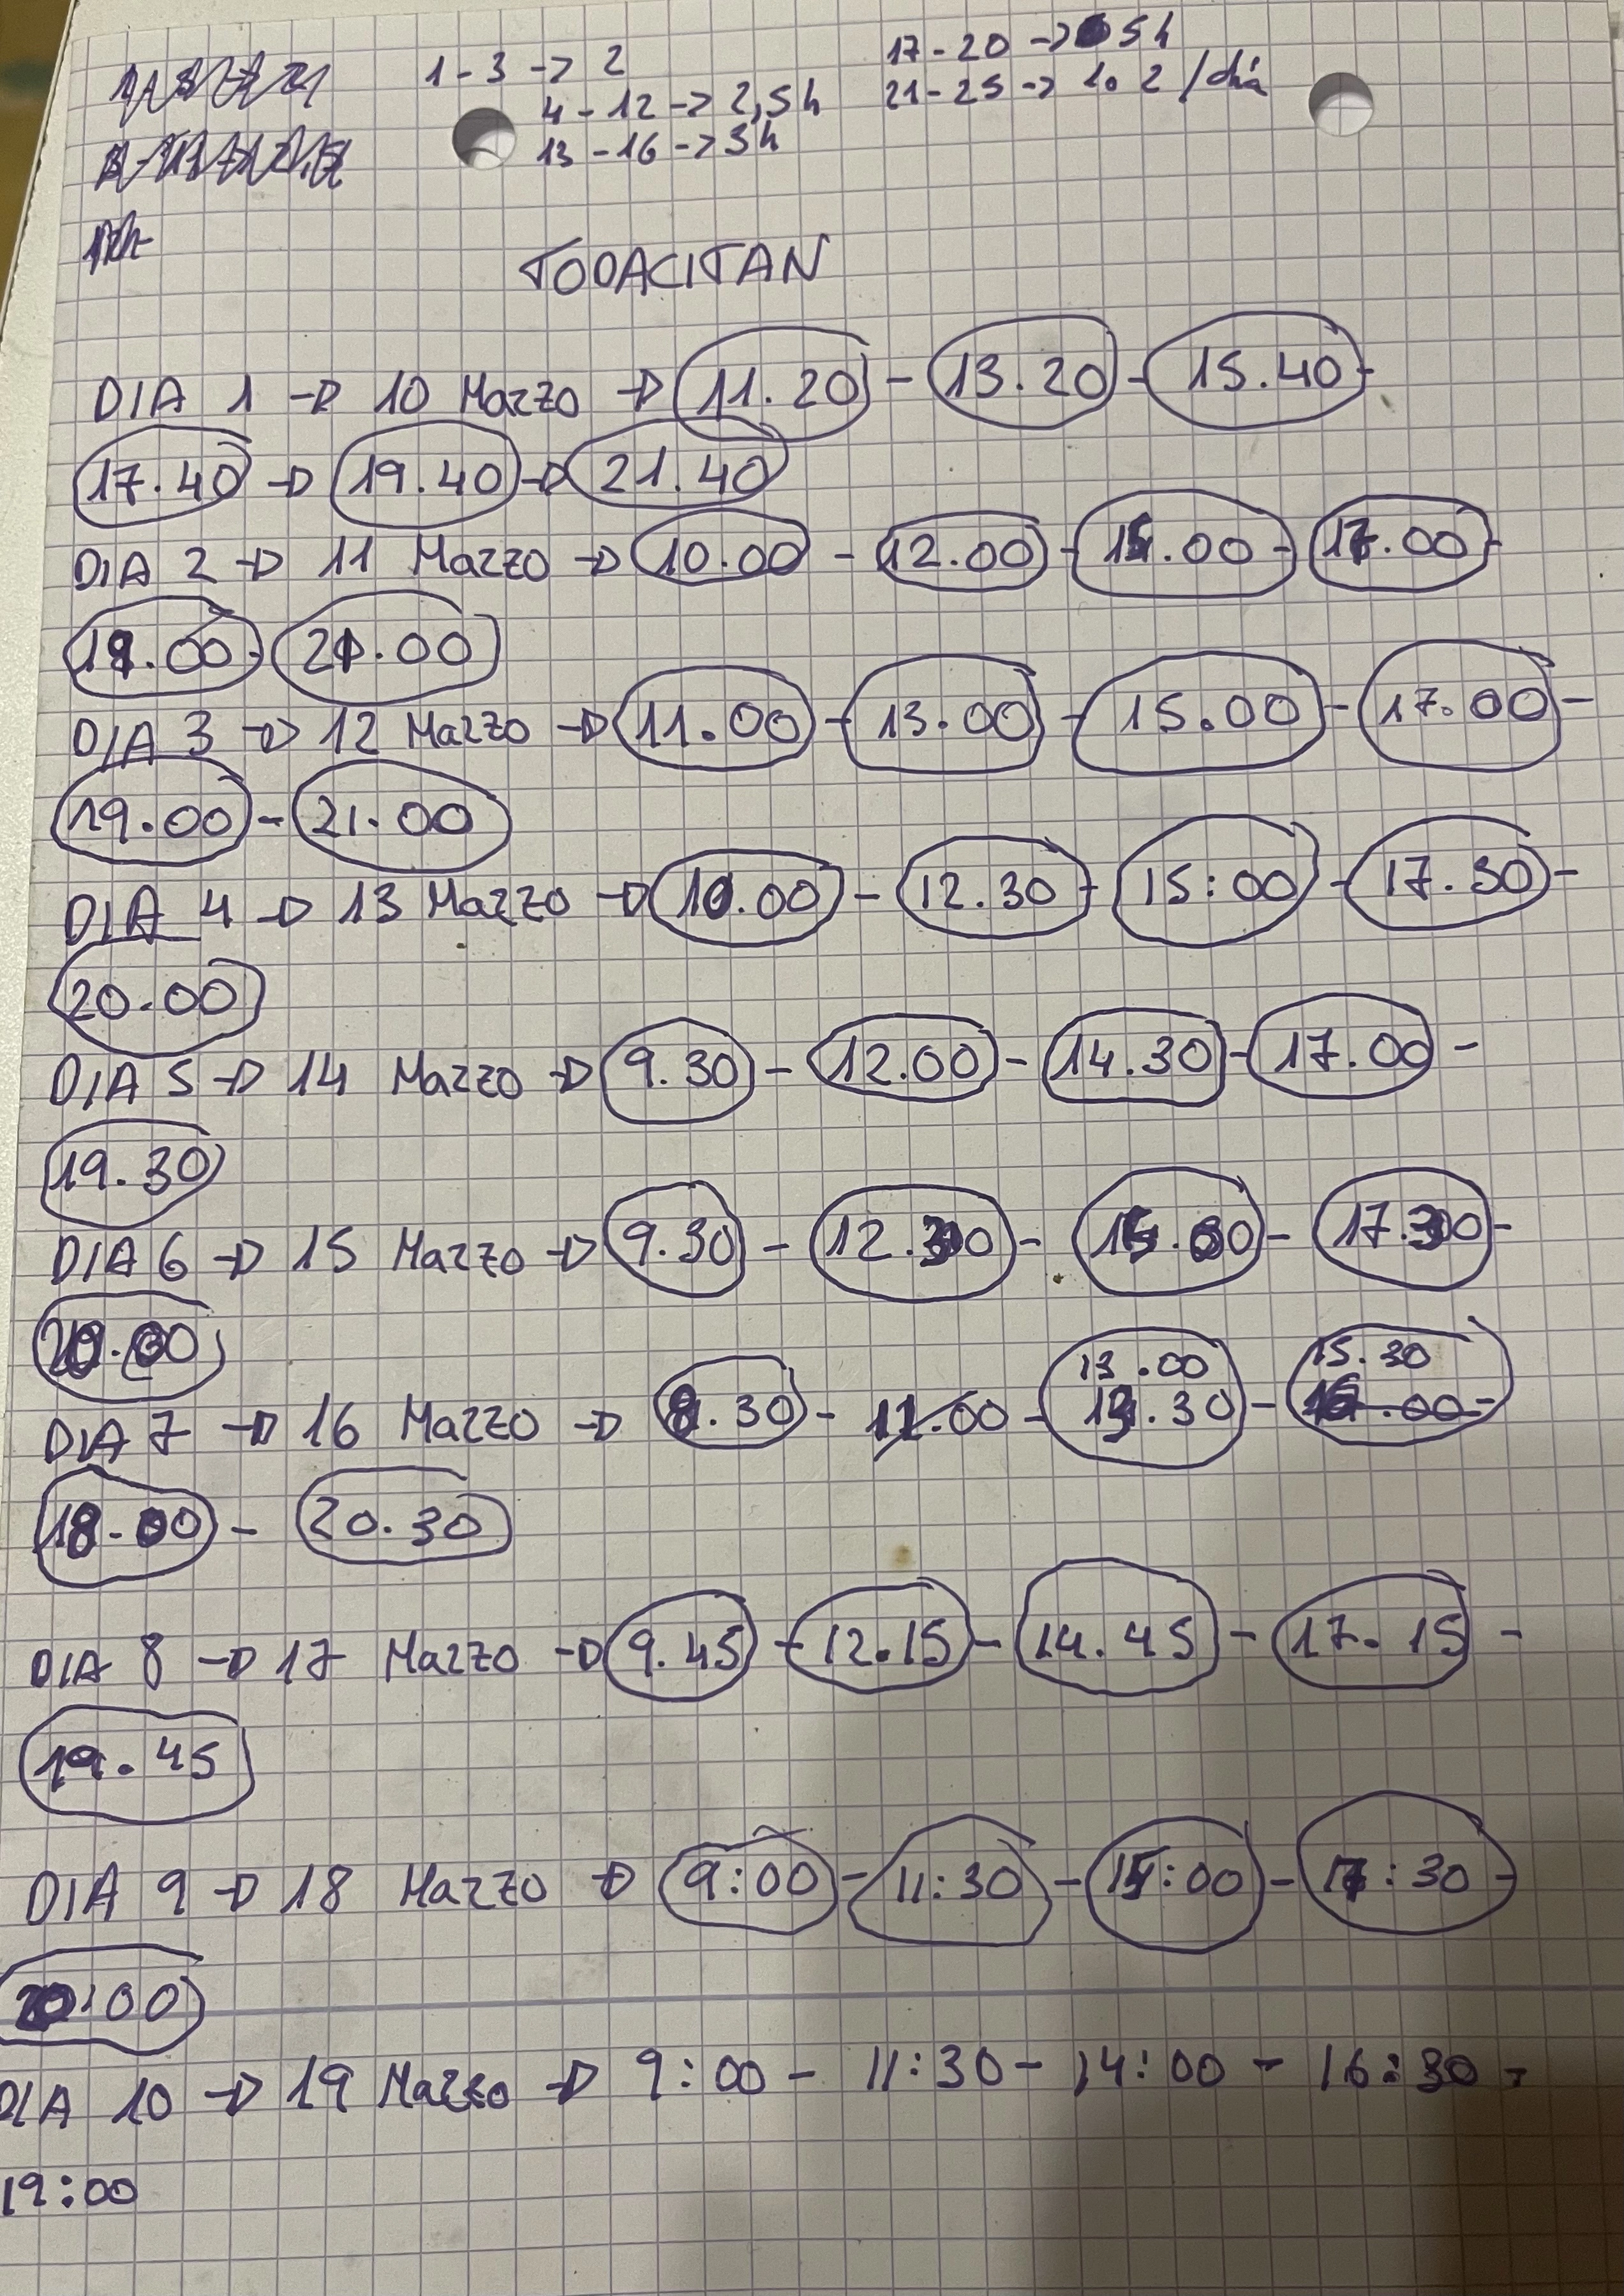 1-3 -> 2
17-20 -> 5h
4-12 -> 2,5h
21-25 -> 1 o 2 /día
13-16 -> 3h
TODACITAN
DIA 1 -> 10 Marzo -> 11.20 - 13.20 - 15.40 -
17.40 -> 19.40 -> 21.40
DIA 2 -> 11 Marzo -> 10.00 - 12.00 - 15.00 - 17.00 -
19.00 - 21.00
DIA 3 -> 12 Marzo -> 11.00 - 13.00 - 15.00 - 17.00 -
19.00 - 21.00
DIA 4 -> 13 Marzo -> 10.00 - 12.30 - 15:00 - 17.30 -
20.00
DIA 5 -> 14 Marzo -> 9.30 - 12.00 - 14.30 - 17.00 -
19.30
DIA 6 -> 15 Marzo -> 9.30 - 12.30 - 15.00 - 17.30 -
20.00
13.00 15.30
DIA 7 -> 16 Marzo -> 8.30 - 11.00 - 13.30 - 16.00 -
18.00 - 20.30
DIA 8 -> 17 Marzo -> 9.45 - 12.15 - 14.45 - 17.15 -
19.45
DIA 9 -> 18 Marzo -> 9:00 - 11:30 - 15:00 - 17:30 -
20:00
DIA 10 -> 19 Marzo -> 9:00 - 11:30 - 14:00 - 16:30 -
19:00